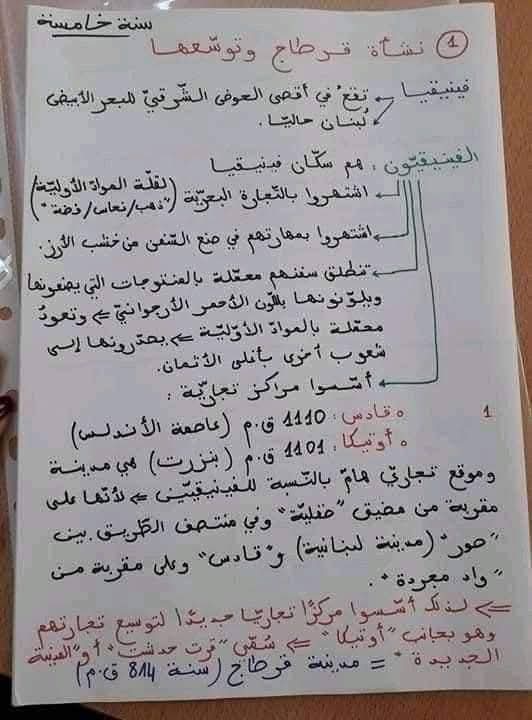 سنة خامسة
1 نشأة قرطاج وتوسّعها
فينيقيا تقعُ في أقصى الحوض الشّرقيّ للبحر الأبيض
لُبنان حاليّا.
الفينيقيّون: هم سكّان فينيقيا
اشتهروا بالتجارة البحريّة (لقلّة الموادّ الأوليّة/ "ذهب/نحاس/فضّة")
اشتهروا بمهارتهم في صنع السّفن من خشب الأرز.
تنطلق سفنهم محمّلة بالمنتوجات التي يصنعونها
ويلوّنونها باللّون الأحمر الأرجوانيّ ⇐ وتعودُ
محمّلة بالموادّ الأوّليّة ⇐ يصدّرونها إلى
شعوب أخرى بأغلى الأثمان.
أسّسوا مراكز تجاريّة:
1 قادس: 1110 ق.م (عاصمة الأندلس)
أوتيكا: 1101 ق.م (بنزرت) هي مدينة
وموقع تجاريّ هامّ بالنّسبة للفينيقيّين ⇐ لأنّها على
مقربة من مضيق "صقليّة" وفي منتصف الطّريق بين
"صور" (مدينة لبنانية) و"قادس" وعلى مقربة من
"واد مجردة".
⇐ لذلك أسّسوا مركزًا تجاريّا جديدًا لتوسيع تجارتهم
وهو بجانب "أوتيكا" ⇐ سُمّي "قرت حدشت" أو "المدينة
الجديدة" = مدينة قرطاج (سنة 814 ق.م)